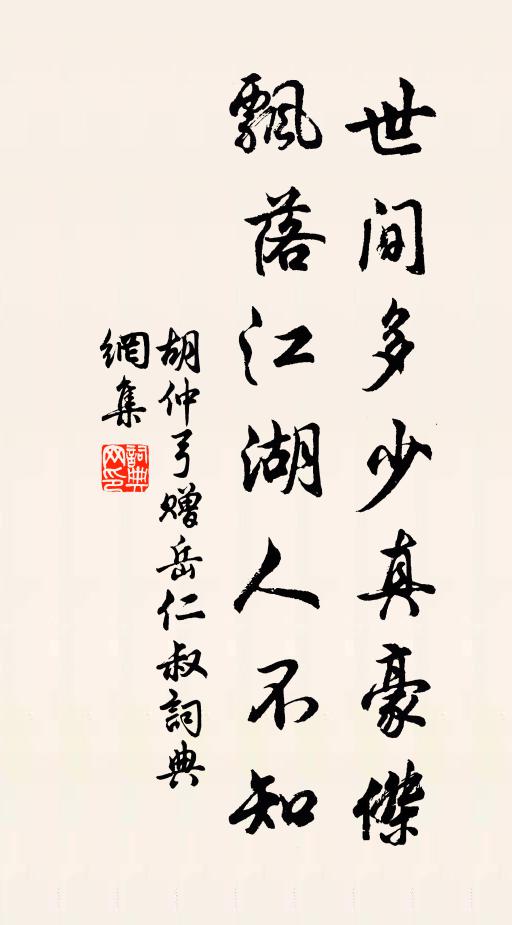 世间多少真豪傑
飘落江湖人不知
胡仲弓赠岳仁叔詞典
網集
詞典网印